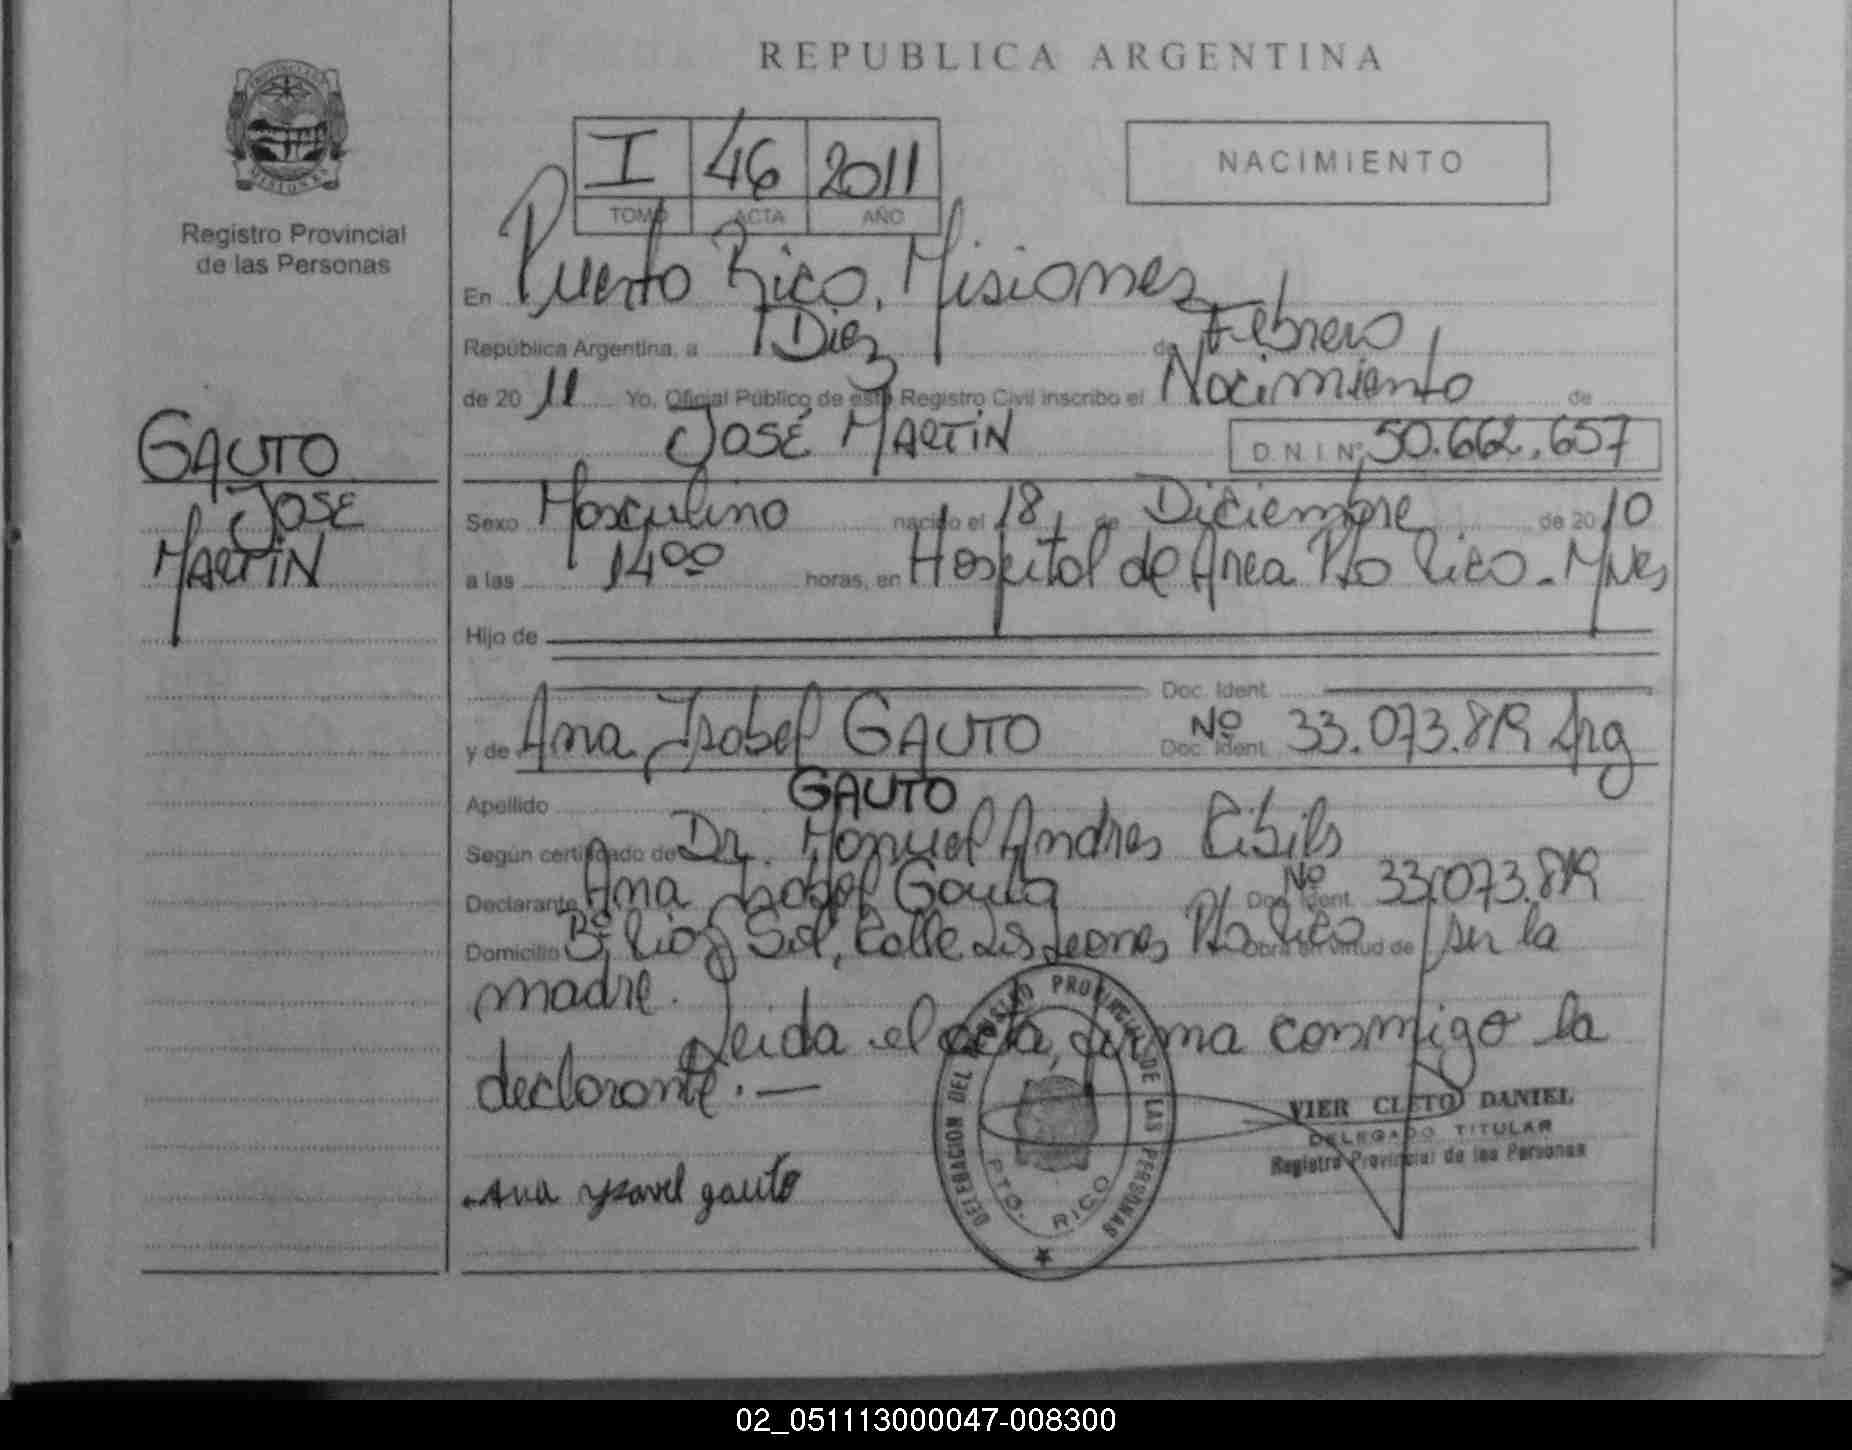 REPUBLICA ARGENTINA
PROVINCIA DE
MISIONES
Registro Provincial
de las Personas
I 46 2011
TOMO ACTA AÑO
NACIMIENTO
En Puerto Rico, Misiones
República Argentina, a Diez de Febrero
de 2011 Yo, Oficial Público de este Registro Civil inscribo el Nacimiento de
JOSÉ MARTIN D.N.I. Nº 50.662.657
GAUTO
JOSE
MARTIN
Sexo Masculino nacido el 18 de Diciembre de 2010
a las 14 00 horas, en Hospital de Area Pto Rico - Mnes
Hijo de
Doc. Ident.
y de Ana Isabel GAUTO Doc. Ident. Nº 33.073.819 Arg
Apellido GAUTO
Según certificado de Dr. Manuel Andres
Declarante Ana Isabel Gauto Doc. Ident. Nº 33.073.819
Domicilio Bº Sol, Calle Los Leones Pto Rico Obra en virtud de ser la
madre.
Leida el acta, firma conmigo la
declarante. —
Ana ysavel gauto
DELEGACION DEL REGISTRO PROVINCIAL DE LAS PERSONAS
PTO. RICO
VIER CLETO DANIEL
DELEGADO TITULAR
Registro Provincial de las Personas
02_051113000047-008300